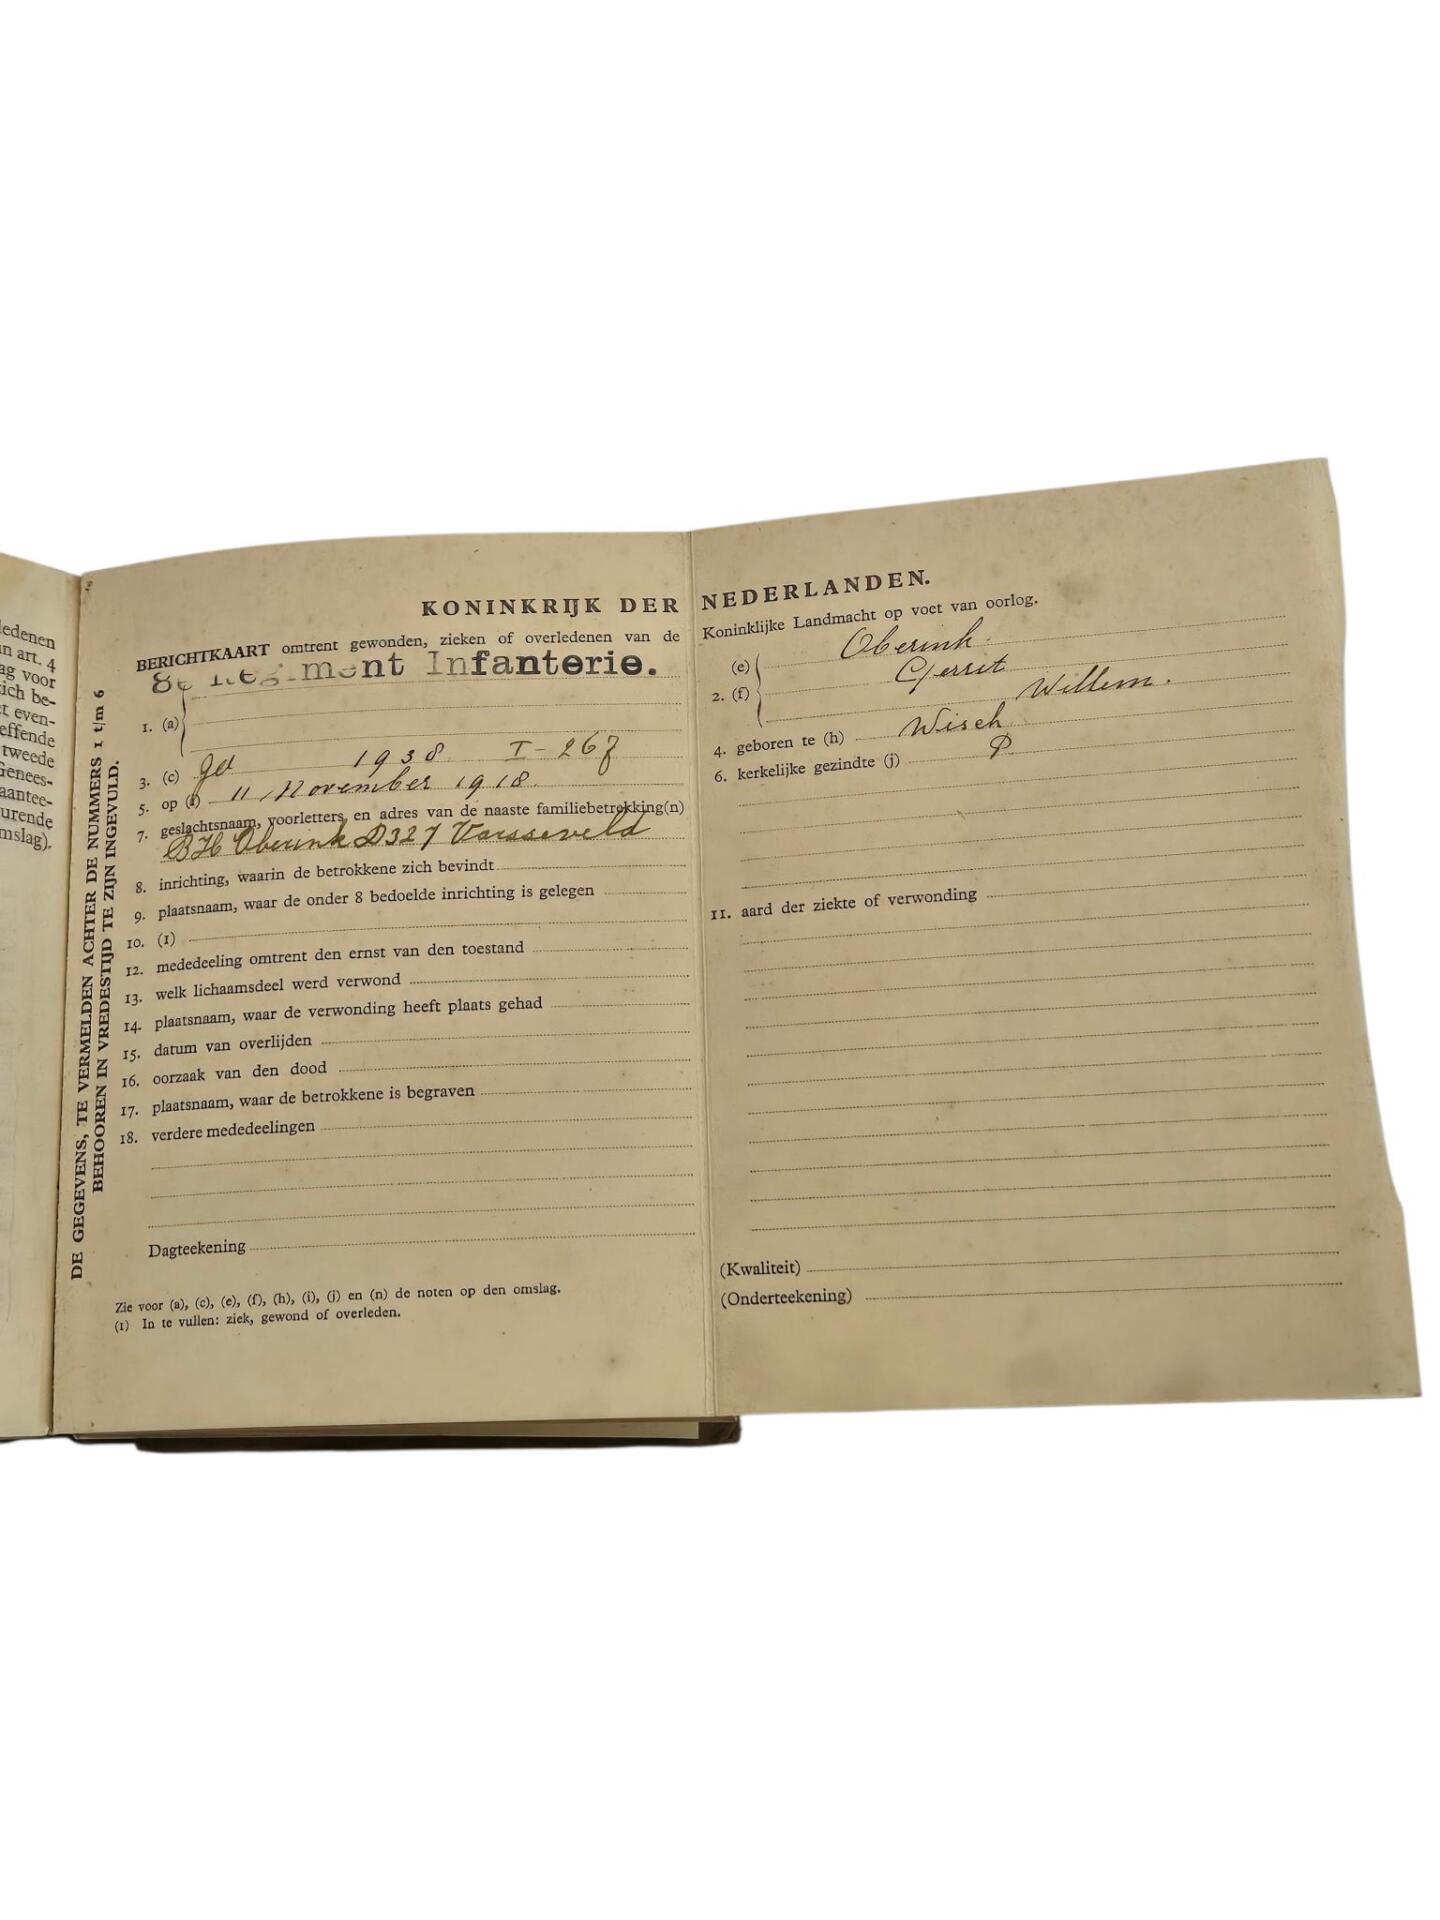 ledenen
an art. 4
ag voor
zich be-
et even-
effende
tweede
Genees-
aantee-
urende
mslag).
DE GEGEVENS, TE VERMELDEN ACHTER DE NUMMERS 1 t/m 6
BEHOOREN IN VREDESTIJD TE ZIJN INGEVULD.
KONINKRIJK DER NEDERLANDEN.
BERICHTKAART omtrent gewonden, zieken of overledenen van de Koninklijke Landmacht op voet van oorlog.
8e Regiment Infanterie.
1. (a)
3. (c) 1938 I-267
5. op (i) 11 November 1918.
7. geslachtsnaam, voorletters, en adres van de naaste familiebetrekking(n)
BH Oberink D327 Varsseveld
8. inrichting, waarin de betrokkene zich bevindt
9. plaatsnaam, waar de onder 8 bedoelde inrichting is gelegen
10. (1)
12. mededeeling omtrent den ernst van den toestand
13. welk lichaamsdeel werd verwond
14. plaatsnaam, waar de verwonding heeft plaats gehad
15. datum van overlijden
16. oorzaak van den dood
17. plaatsnaam, waar de betrokkene is begraven
18. verdere mededeelingen
Dagteekening
Zie voor (a), (c), (e), (f), (h), (i), (j) en (n) de noten op den omslag.
(1) In te vullen: ziek, gewond of overleden.
(e) Oberink.
2. (f) Gerrit
Willem.
4. geboren te (h) Wisch
6. kerkelijke gezindte (j) P
11. aard der ziekte of verwonding
(Kwaliteit)
(Onderteekening)